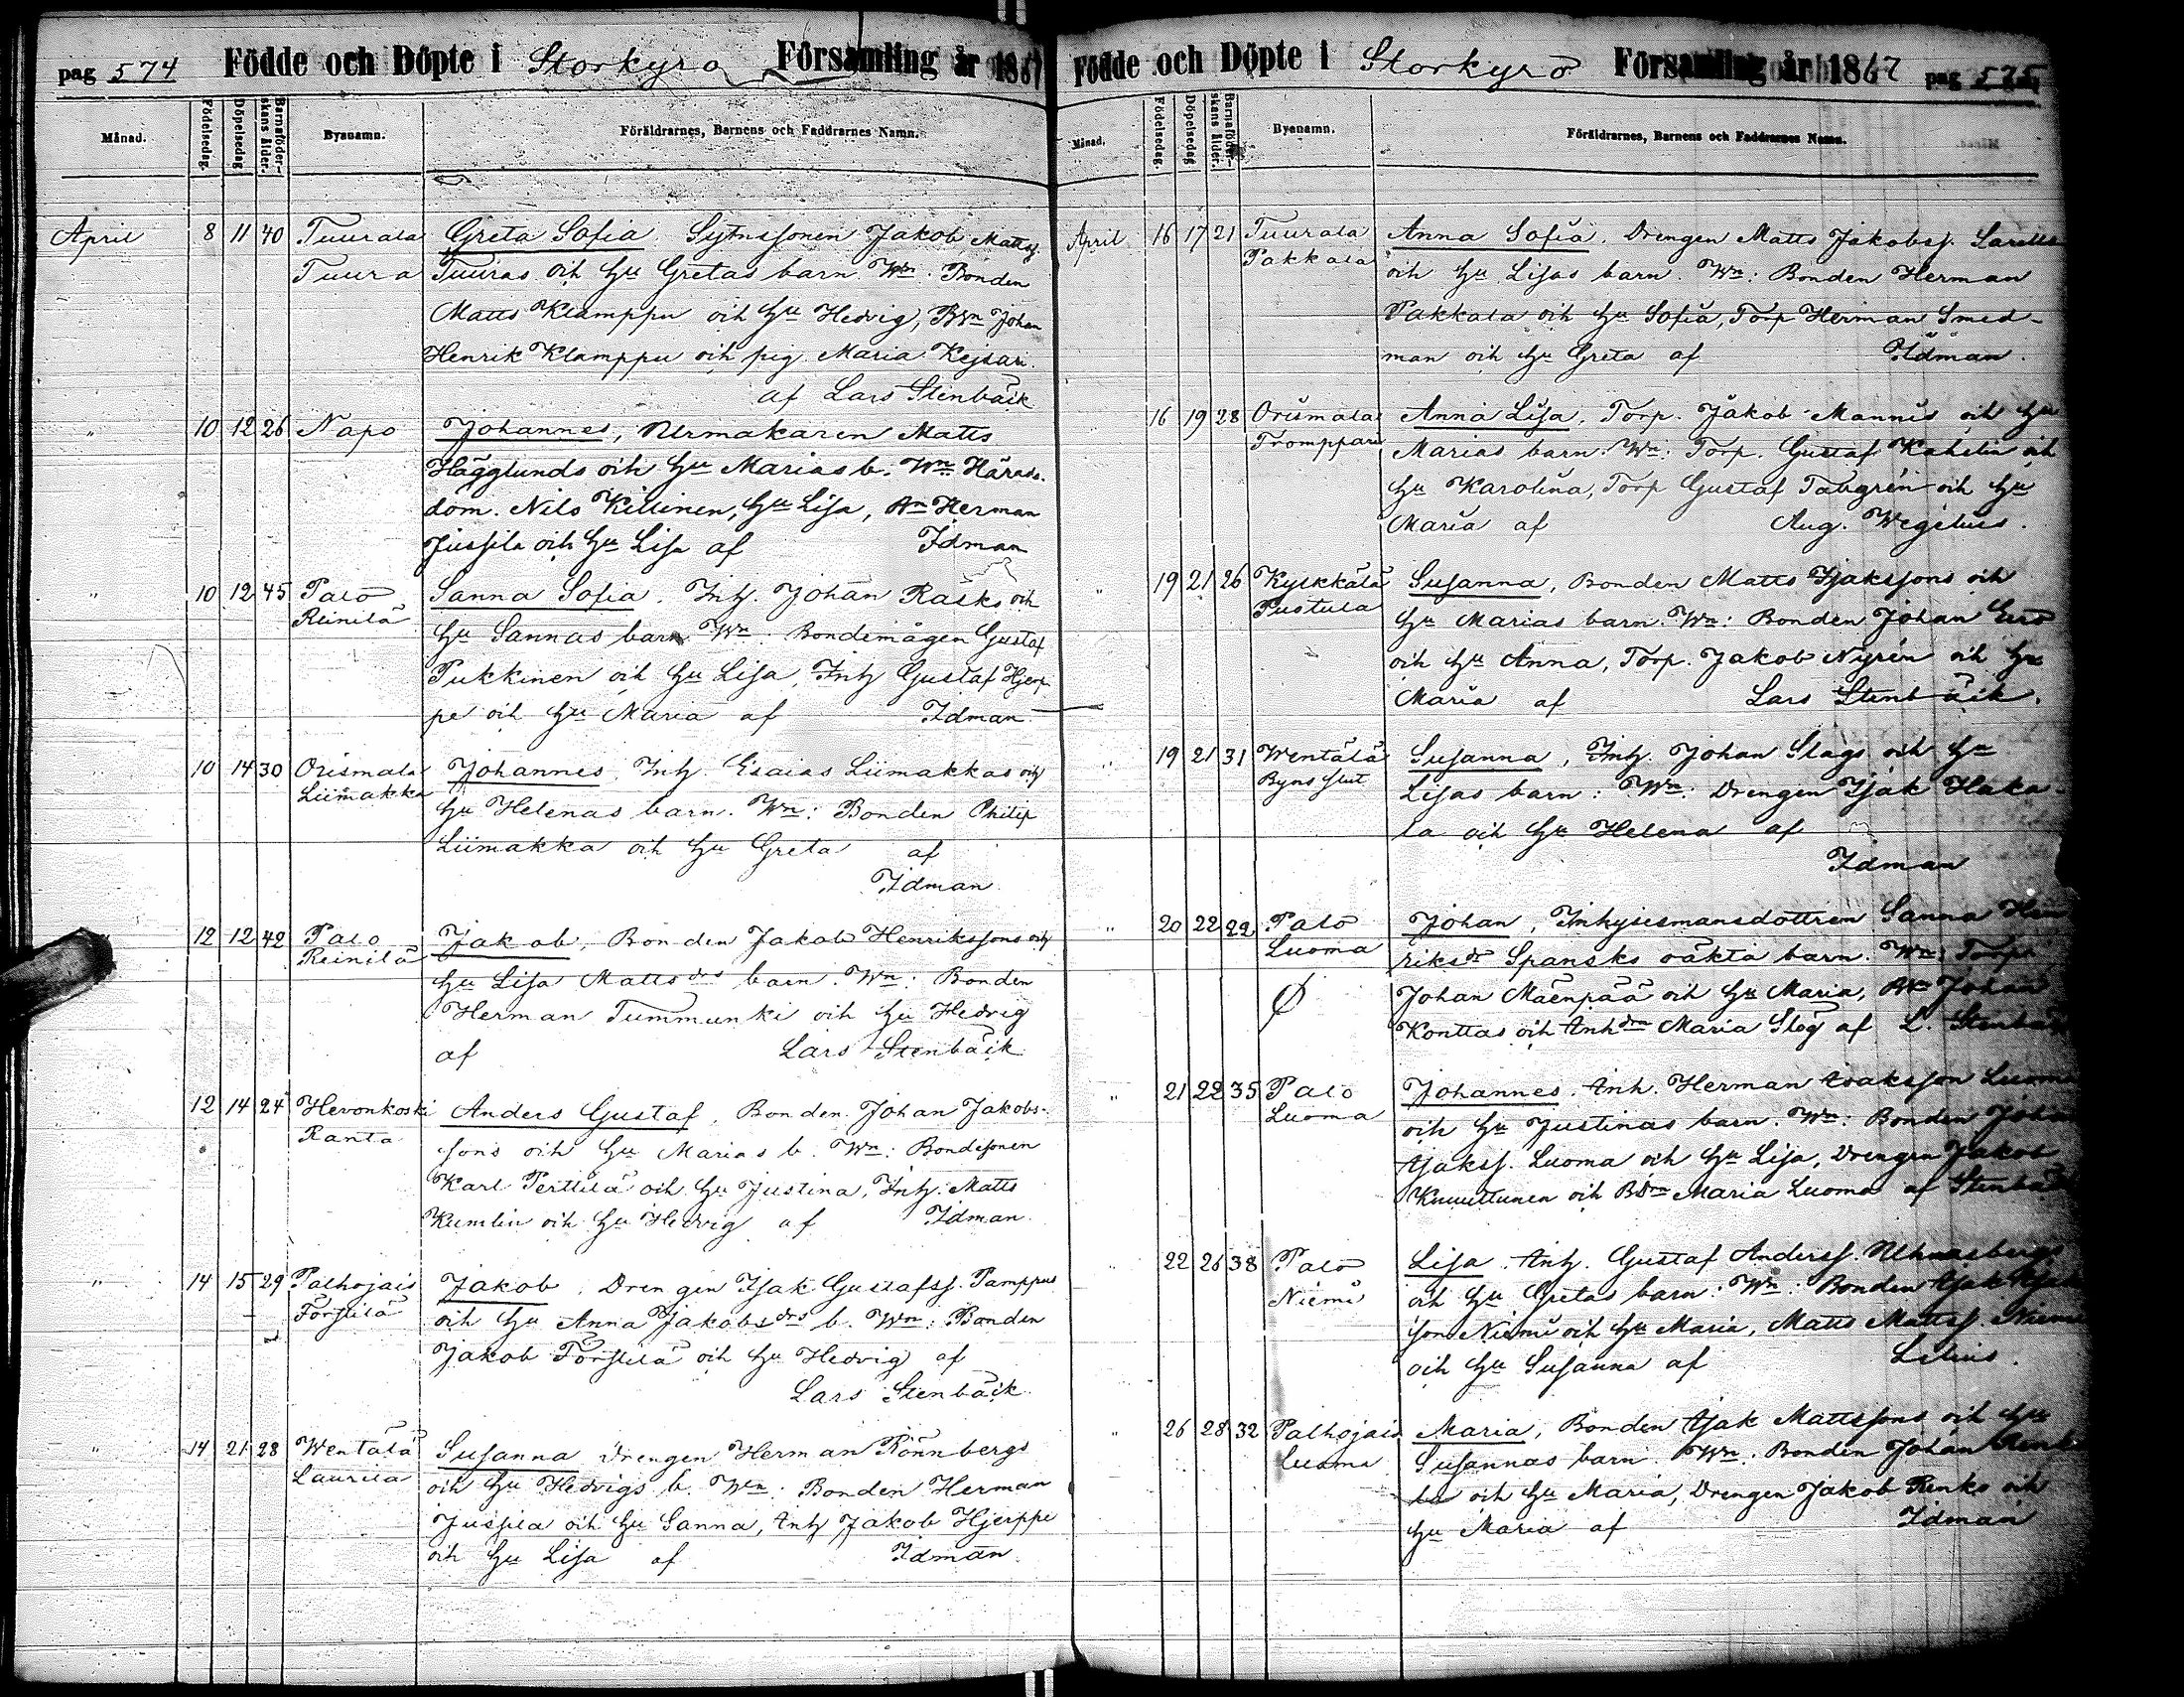 pag 574 Födde och Döpte i Storkyro Församling år 1867
Månad. Födelsedag. Döpelsedag Barnaföderskans ålder. Byanamn. Föräldrarnes, Barnens och Faddrarnes Namn.
April 8 11 40 Tuurala Greta Sofia. Sytnssonen Jakob Mattss.
Tuura Tuuras och hu Gretas barn. Wn: Bonden
Matts Klamppu och hu Hedvig, Bsn Johan
Henrik Klamppu och pig. Maria Kejsari.
af Lars Stenbäck
" 10 12 26 Napo Johannes, Urmakaren Matts
Hägglunds och hu Marias b. Wn: Härads.
dom. Nils Killinen, hu Lisa, An Herman
Jussila och hu Lisa af Idman
" 10 12 45 Palo Sanna Sofia. Inh. Johan Rasks och
Reinilä hu Sannas barn Wn: Bondemågen Gustaf
Pukkinen och hu Lisa, Inh Gustaf Hjerp-
pe och hu Maria af Idman
" 10 14 30 Orismala Johannes, Inh. Esaias Liimakkas och
Liimakka hu Helenas barn. Wn: Bonden Philip
Liimakka och hu Greta af
Idman
" 12 12 42 Palo Jakob, Bonden Jakob Henrikssons och
Reinilä hu Lisa Mattsdrs barn. Wn: Bonden
Herman Tummunki och hu Hedvig
af Lars Stenbäck
" 12 14 24 Hevonkoski Anders Gustaf. Bonden Johan Jakobs-
Ranta sons och hu Marias b. Wn: Bondesonen
Karl Perttilä och hu Justina, Inh. Matts
Kumlin och hu Hedvig af Idman.
" 14 15 29 Palhojais Jakob. Drengen Isak Gustafss. Pamppus
Förstilä och hu Anna Jakobsdrs b. Wn: Bonden
Jakob Törstilä och hu Hedvig af
Lars Stenbäck
" 14 21 28 Wentälä Susanna Drengen Herman Rönnbergs
Laurila och hu Hedvigs b. Wn: Bonden Herman
Jussila och hu Sanna, Inh Jakob Hjerppe
och hu Lisa af Idman
Födde och Döpte i Storkyro Församling år 1867 pag 575
Månad. Födelsedag. Döpelsedag Barnaföderskans ålder. Byanamn. Föräldrarnes, Barnens och Faddrarnes Namn.
April 16 17 21 Tuurala Anna Sofia. Drengen Matts Jakobss.
Pakkala och hu Lisas barn. Wn: Bonden Herman
Pakkala och hu Sofia, Torp Herman Smed-
man och hu Greta af Idman.
16 19 28 Orismala Anna Lisa, Torp. Jakob Mannis och hu
Tromppari Marias barn. Wn: Torp. Gustaf Kahelin och
hu Karolina, Torp Gustaf Taugrén och hu
Maria af Aug. Wegelius.
" 19 21 26 Kyskkälä Susanna, Bonden Matts Isakssons och
Pustula hu Marias barn. Wn: Bonden Johan Ers
och hu Anna, Torp. Jakob Nyrén och hu
Maria af Lars Stenbäck.
" 19 21 31 Wentälä Susanna, Inh. Johan Slags och hu
Byns slut Lisas barn: Wn: Drengen Isak Haka-
la och hu Helena af
Idman
" 20 22 22 Palo Johan, Inhysesmansdottren Sanna Hen
Luoma riksdr Spansks oäkta barn. Wn: Torp
Ø Johan Mäenpää och hu Maria, An Johan
Konttas och Inhdrn Maria Slög af L. Stenbäck
" 21 22 35 Palo Johannes. Inh. Herman Isaksson Luoma
Luoma och hu Justinas barn. Wn: Bonden Johan
Isakss. Luoma och hu Lisa, Drengen Jakob
Knuuttunen och Bdrn Maria Luoma af Stenbäck
" 22 26 38 Palo Lisa. Inh. Gustaf Anderss.
Niemi och hu Gretas barn. Wn: Bonden Isak Isak
son Niemi och hu Maria, Matts Mattss. Niemi
och hu Susanna af Lilius.
" 26 28 32 Palhojais Maria, Bonden Isak Mattssons och hu
Luoma Susannas barn. Wn: Bonden Johan
la och hu Maria, Drengen Jakob Renko och
hu Maria af Idman